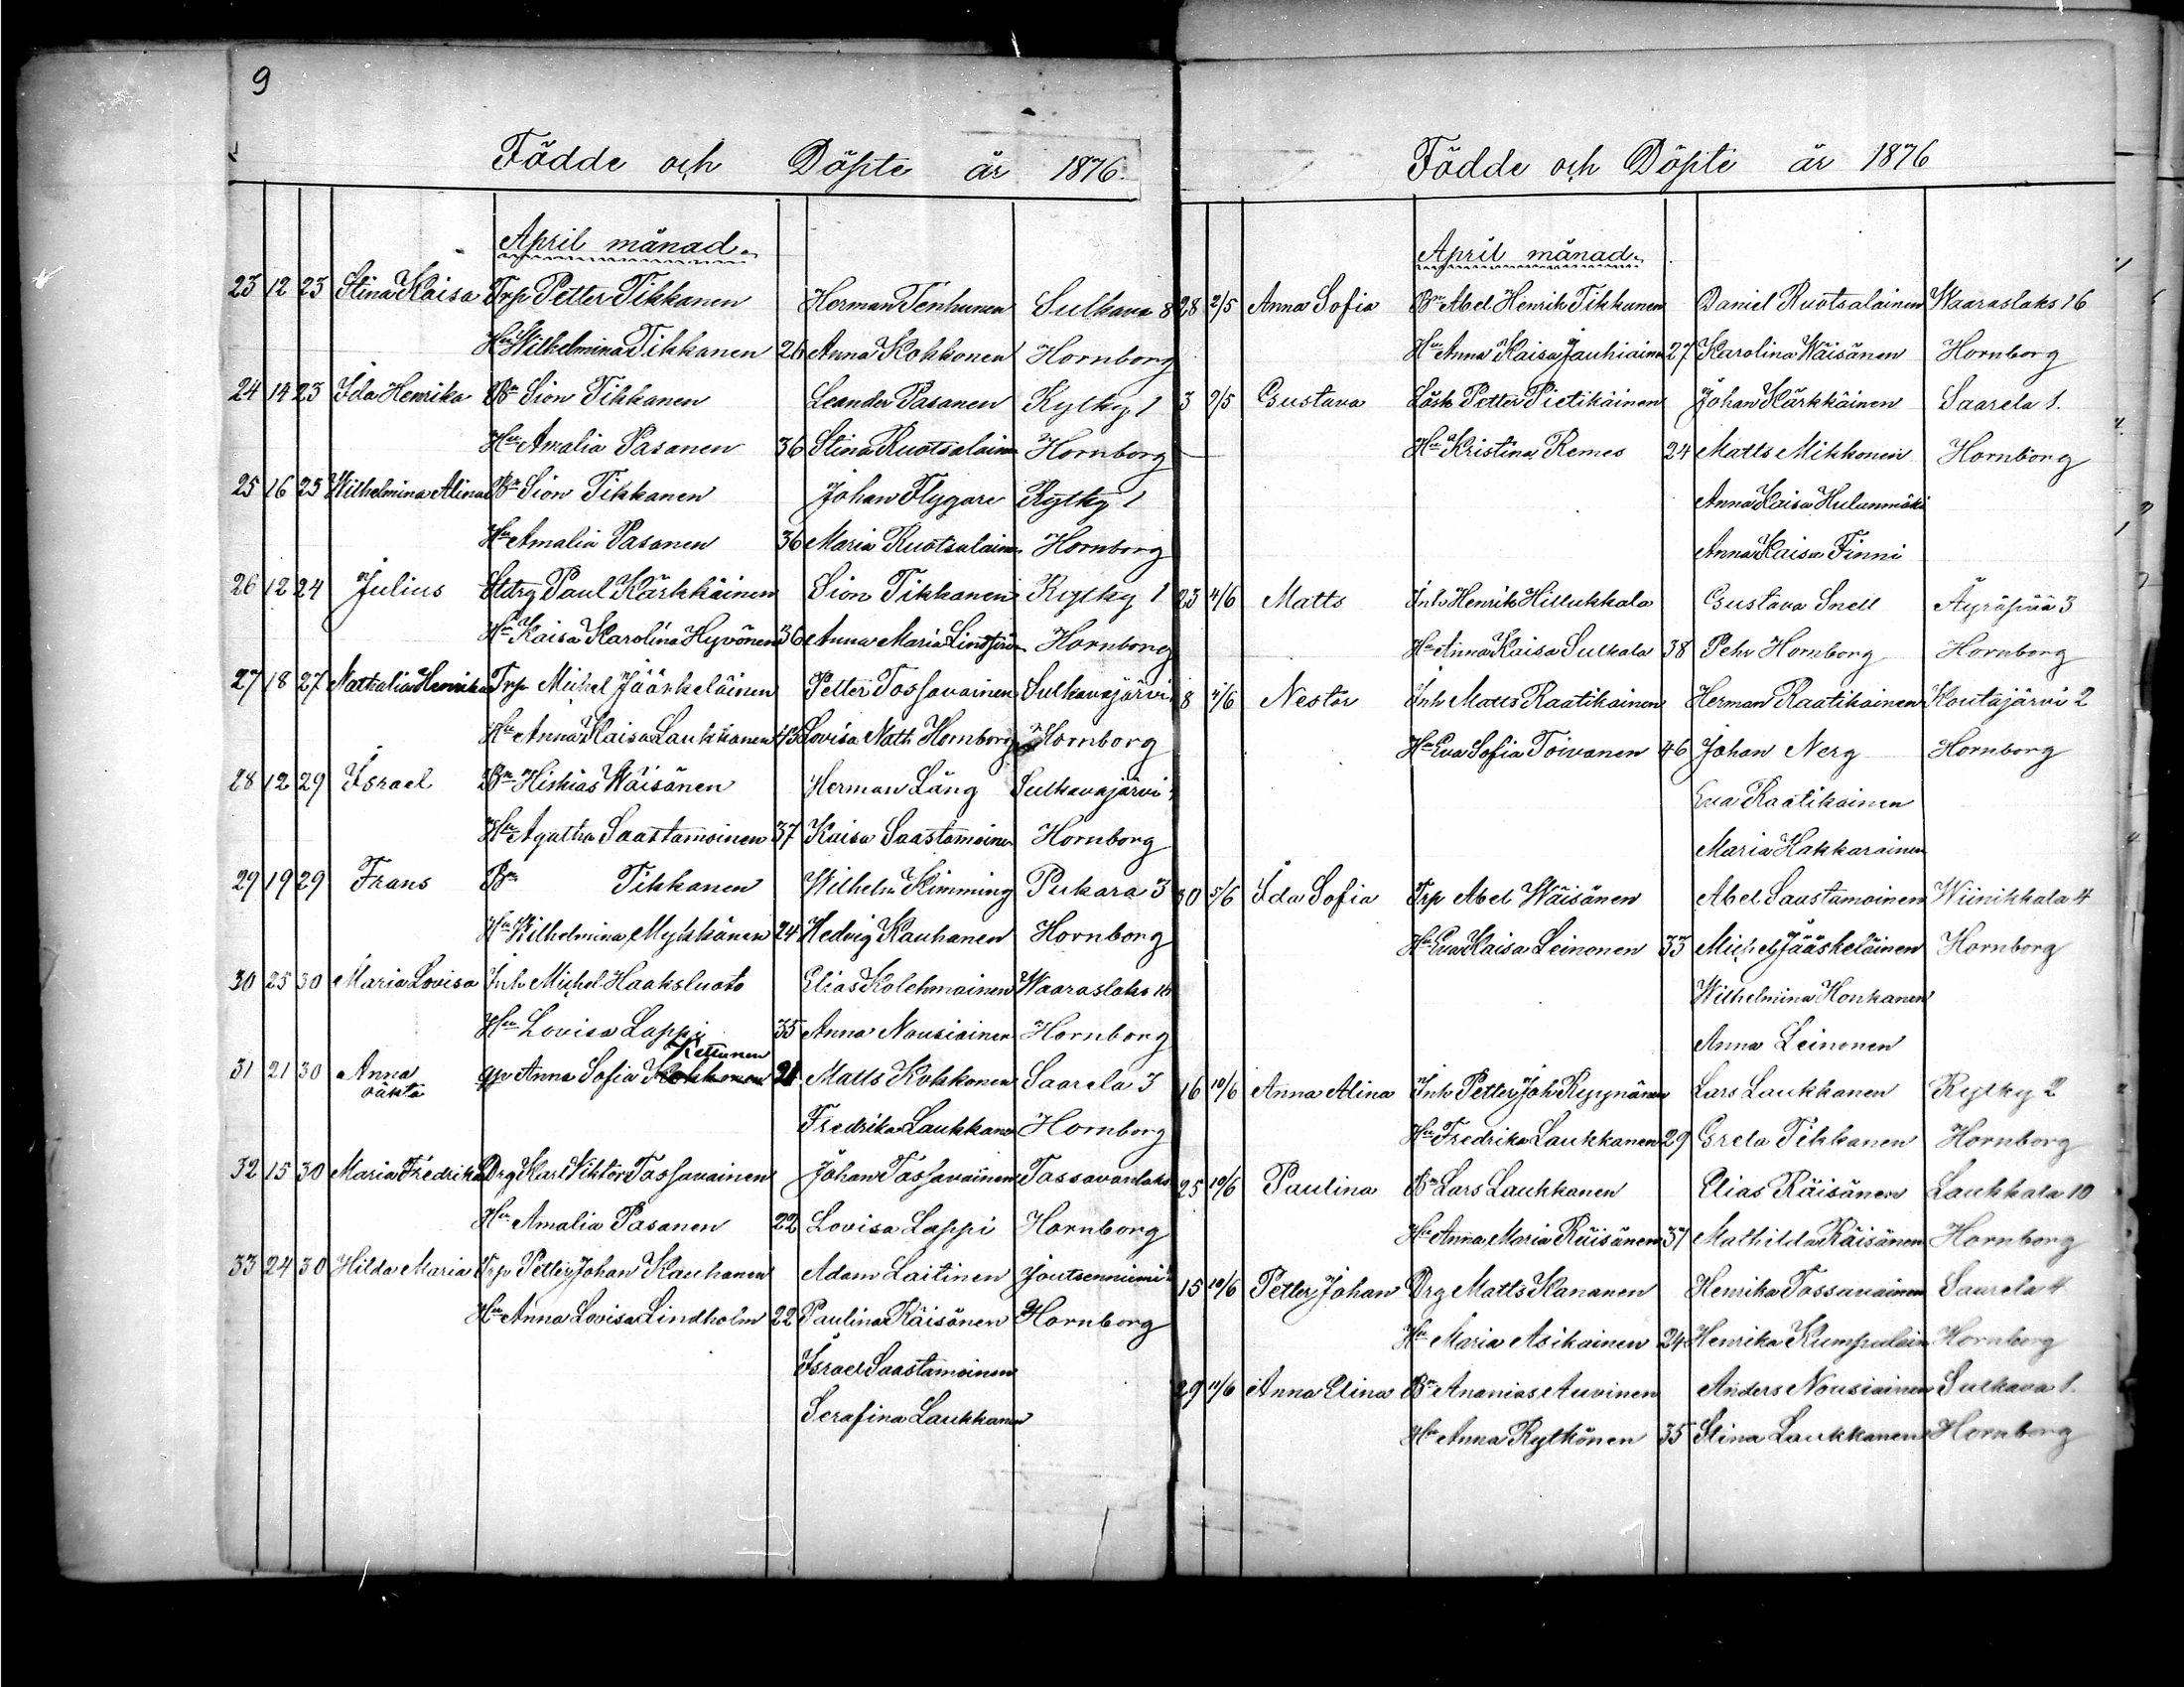 9
Födde och Döpte år 1876.
April månad.
23 12 23 Stina Kaisa Trp Petter Tikkanen Herman Tenhunen Sulkava 8
Hu Wilhelmina Tikkanen 26 Anna Kokkonen Hornborg
24 14 23 Ida Henrika Bn Sion Tikkanen Leander Pasanen Rytky 1
Hu Amalia Pasanen 36 Stina Ruotsalainen Hornborg
25 16 23 Wilhelmina Alina Bn Sion Tikkanen Johan Flygare Rytky 1
Hu Amalia Pasanen 36 Maria Ruotsalainen Hornborg
26 12 24 Julius Stdrg Paul Kärkkäinen Sion Tikkanen Rytky 1
Hu Kaisa Karolina Hyvönen 36 Anna Maria Hornborg
27 18 27 Nathalia Henrika Trp Michel Jääskeläinen Petter Tossavainen Sulkavajärvi
Hu Anna Kaisa Laukkanen 43 Lovisa Math Hornborg Hornborg
28 12 29 Israel Bn Hiskias Wäisänen Herman Lång Sulkavajärvi
Hu Agatha Saastamoinen 37 Kaisa Saastamoinen Hornborg
29 19 29 Frans Bn Tikkanen Wilhelm Kimming Pukara 3
Hu Wilhelmina Mykkänen 24 Hedvig Kauhanen Hornborg
30 25 30 Maria Lovisa Inh Michel Haaksluoto Elias Kolehmainen Waaraslaks 16
Hu Lovisa Lappi 35 Anna Nousiainen Hornborg
Kettunen
31 21 30 Anna qp Anna Sofia Kokkonen 21 Matts Kokkonen Saarela 3
oäkta
Fredrika Laukkanen Hornborg
32 15 30 Maria Fredrika Drg Karl Viktor Tossavainen Johan Tossavainen Tossavanlaks
Hu Amalia Pasanen 22 Lovisa Lappi Hornborg
33 24 30 Hilda Maria Trp Petter Johan Kauhanen Adam Laitinen Joutsenniemi
Hu Anna Lovisa Lindholm 22 Paulina Räisänen Hornborg
Israel Saastamoinen
Serafina Laukkanen
Födde och Döpte år 1876
April månad.
28 2/5 Anna Sofia Bn Abel Henrik Tikkanen Daniel Ruotsalainen Waaraslaks 16
Hu Anna Kaisa Jauhiainen 27 Karolina Wäisänen Hornborg
3 7/5 Gustava Lösk Petter Pietikäinen Johan Kärkkäinen Saarela 1.
Hu Kristina Remes 24 Matts Mikkonen Hornborg
Anna Kaisa Hulunmäki
Anna Kaisa Finni
23 4/6 Matts Inh Henrik Hillukkala Gustava Snell Äyräpää 3
Hu Anna Kaisa Sulkala 38 Pehr Hornborg Hornborg
8 4/6 Nestor Inh Matts Raatikainen Herman Raatikainen Koutajärvi 2
Hu Eva Sofia Toivanen 46 Johan Nerg Hornborg
Eva Raatikainen
Maria Hakkarainen
30 5/6 Ida Sofia Trp Abel Wäisänen Abel Saastamoinen Wiinikkala 4
Hu Eva Kaisa Leinonen 33 Michel Jääskeläinen Hornborg
Wilhelmina Honkanen
Anna Leinonen
16 10/6 Anna Alina Inh Petter Joh Ryynänen Lars Laukkanen Rytky 2
Hu Fredrika Laukkanen 29 Greta Tikkanen Hornborg
25 10/6 Paulina Bn Lars Laukkanen Elias Räisänen Laukkala 10
Hu Anna Maria Räisänen 37 Mathilda Räisänen Hornborg
15 10/6 Petter Johan Drg Matts Kananen Henrika Tossavainen Saarela 4
Hu Maria Asikainen 24 Henrika Kumpulain Hornborg
29 11/6 Anna Elina Bn Ananias Auvinen Anders Nousiainen Sulkava 1.
Hu Anna Rytkönen 35 Stina Laukkanen Hornborg